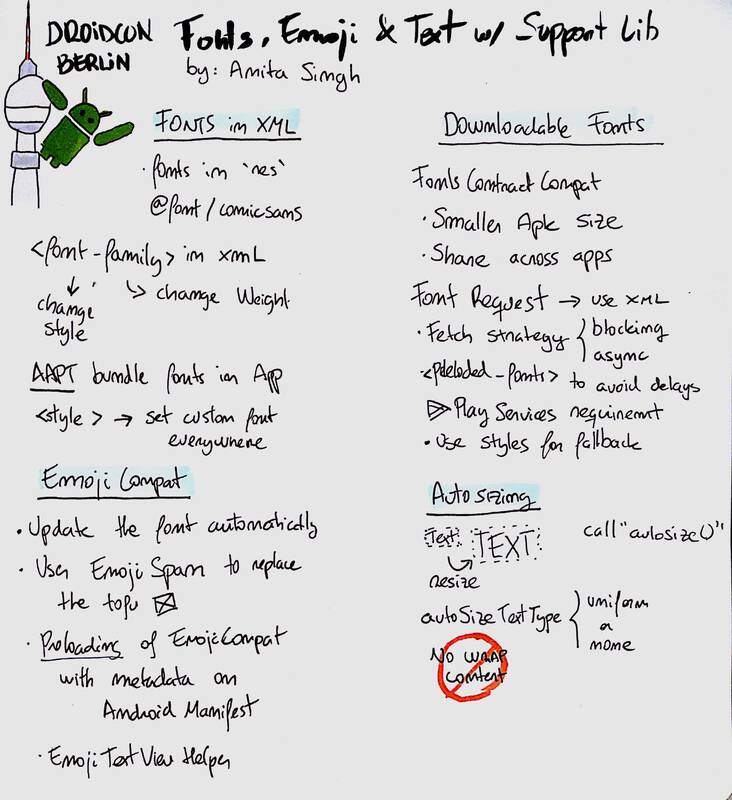 DROIDCON
BERLIN
Fonts, Emoji & Text w/ Support Lib
by: Amita Singh
FONTS in XML
· fonts in `res`
@font/comicsans
<font-family> in xmL
change
style
change Weight
AAPT bundle fonts in App
<style> → set custom font
everywhere
Emoji Compat
· Update the font automatically
· Uses Emoji Span to replace
the tofu
· Preloading of EmojiCompat
with metadata on
Android Manifest
· Emoji Text View Helper
Downloadable Fonts
Fonts Contract Compat
· Smaller Apk size
· Share across apps
Font Request → use XML
· Fetch strategy { blocking
async
to avoid delays
Play Services requirement
· Use styles for fallback
Autosizing
Text TEXT
resize
call "autosize()"
autoSizeTextType { uniform
or
none
No WRAP
content